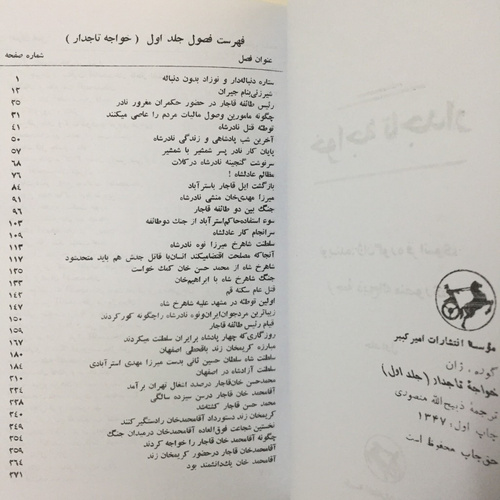 فهرست فصول جلد اول ( خواجه تاجدار )
عنوان فصل شماره صفحه
ستاره دنباله‌دار و نوزاد بدون دنباله ۱
شیرزنی بنام جیران ۱۲
رئیس طائفه قاجار در حضور حکمران مغرور نادر ۲۵
چگونه مامورین وصول مالیات مردم را عاصی میکنند ۳۱
توطئه قتل نادرشاه ۴۱
آخرین شب پادشاهی و زندگی نادرشاه ۵۰
پایان کار نادر پسر شمشیر با شمشیر ۵۷
سرنوشت گنجینه نادرشاه درکلات ۶۸
مظالم عادلشاه ! ۷۶
بازگشت ایل قاجار باسترآباد ۸۴
میرزا مهدی‌خان منشی نادرشاه ۹۱
جنگ بین دو طائفه قاجار ۹۶
سوء استفاده‌حاکم‌استرآباد از جنگ دوطائفه ۱۰۳
سرانجام کار عادلشاه ۱۰۹
سلطنت شاهرخ میرزا نوه نادرشاه ۱۱۳
آنجاکه مصلحت اقتضامیکند انسان‌با قاتل جدش هم باید متحدشود ۱۱۷
شاهرخ شاه از محمد حسن خان کمک خواست ۱۲۵
جنگ شاهرخ شاه با ابراهیم‌خان ۱۳۳
قتل عام سکنه قم ۱۴۲
اولین توطئه در مشهد علیه شاهرخ شاه ۱۴۷
زیباترین مردجوان‌ایران‌ونوه نادرشاه راچگونه کورکردند ۱۵۰
قیام رئیس طائفه قاجار ۱۵۹
روزگاری‌که چهار پادشاه برایران سلطنت میکردند ۱۶۷
مبارزه کریمخان زند باقحطی اصفهان ۱۸۰
سلطنت شاه سلطان حسین ثانی بدست میرزا مهدی استرآبادی ۱۸۴
سلطنت آزادشاه در اصفهان
محمدحسن خان‌قاجار درصدد اشغال تهران برآمد ۲۱۰
آقامحمد خان قاجار درسن سیزده سالگی ۲۲۴
محمد حسن قاجار کشته‌شد ۲۳۸
کریمخان زند دستورداد آقامحمدخان رادستگیر کنند ۲۴۰
نخستین شجاعت فوق‌العاده آقامحمدخان درمیدان جنگ ۲۴۹
چگونه آقامحمد خان قاجار را خواجه کردند ۲۵۴
آقامحمد خان قاجار درحضور کریمخان زند ۲۶۴
آقامحمد خان یك‌دانشمند بود ۲۷۱
خواجهٔ تاجدار
مؤسسهٔ انتشارات امیرکبیر
گوره، ژان
خواجهٔ تاجدار (جلد اول)
ترجمهٔ ذبیح‌الله منصوری
چاپ اول: ۱۳۴۷
حق‌چاپ محفوظ است